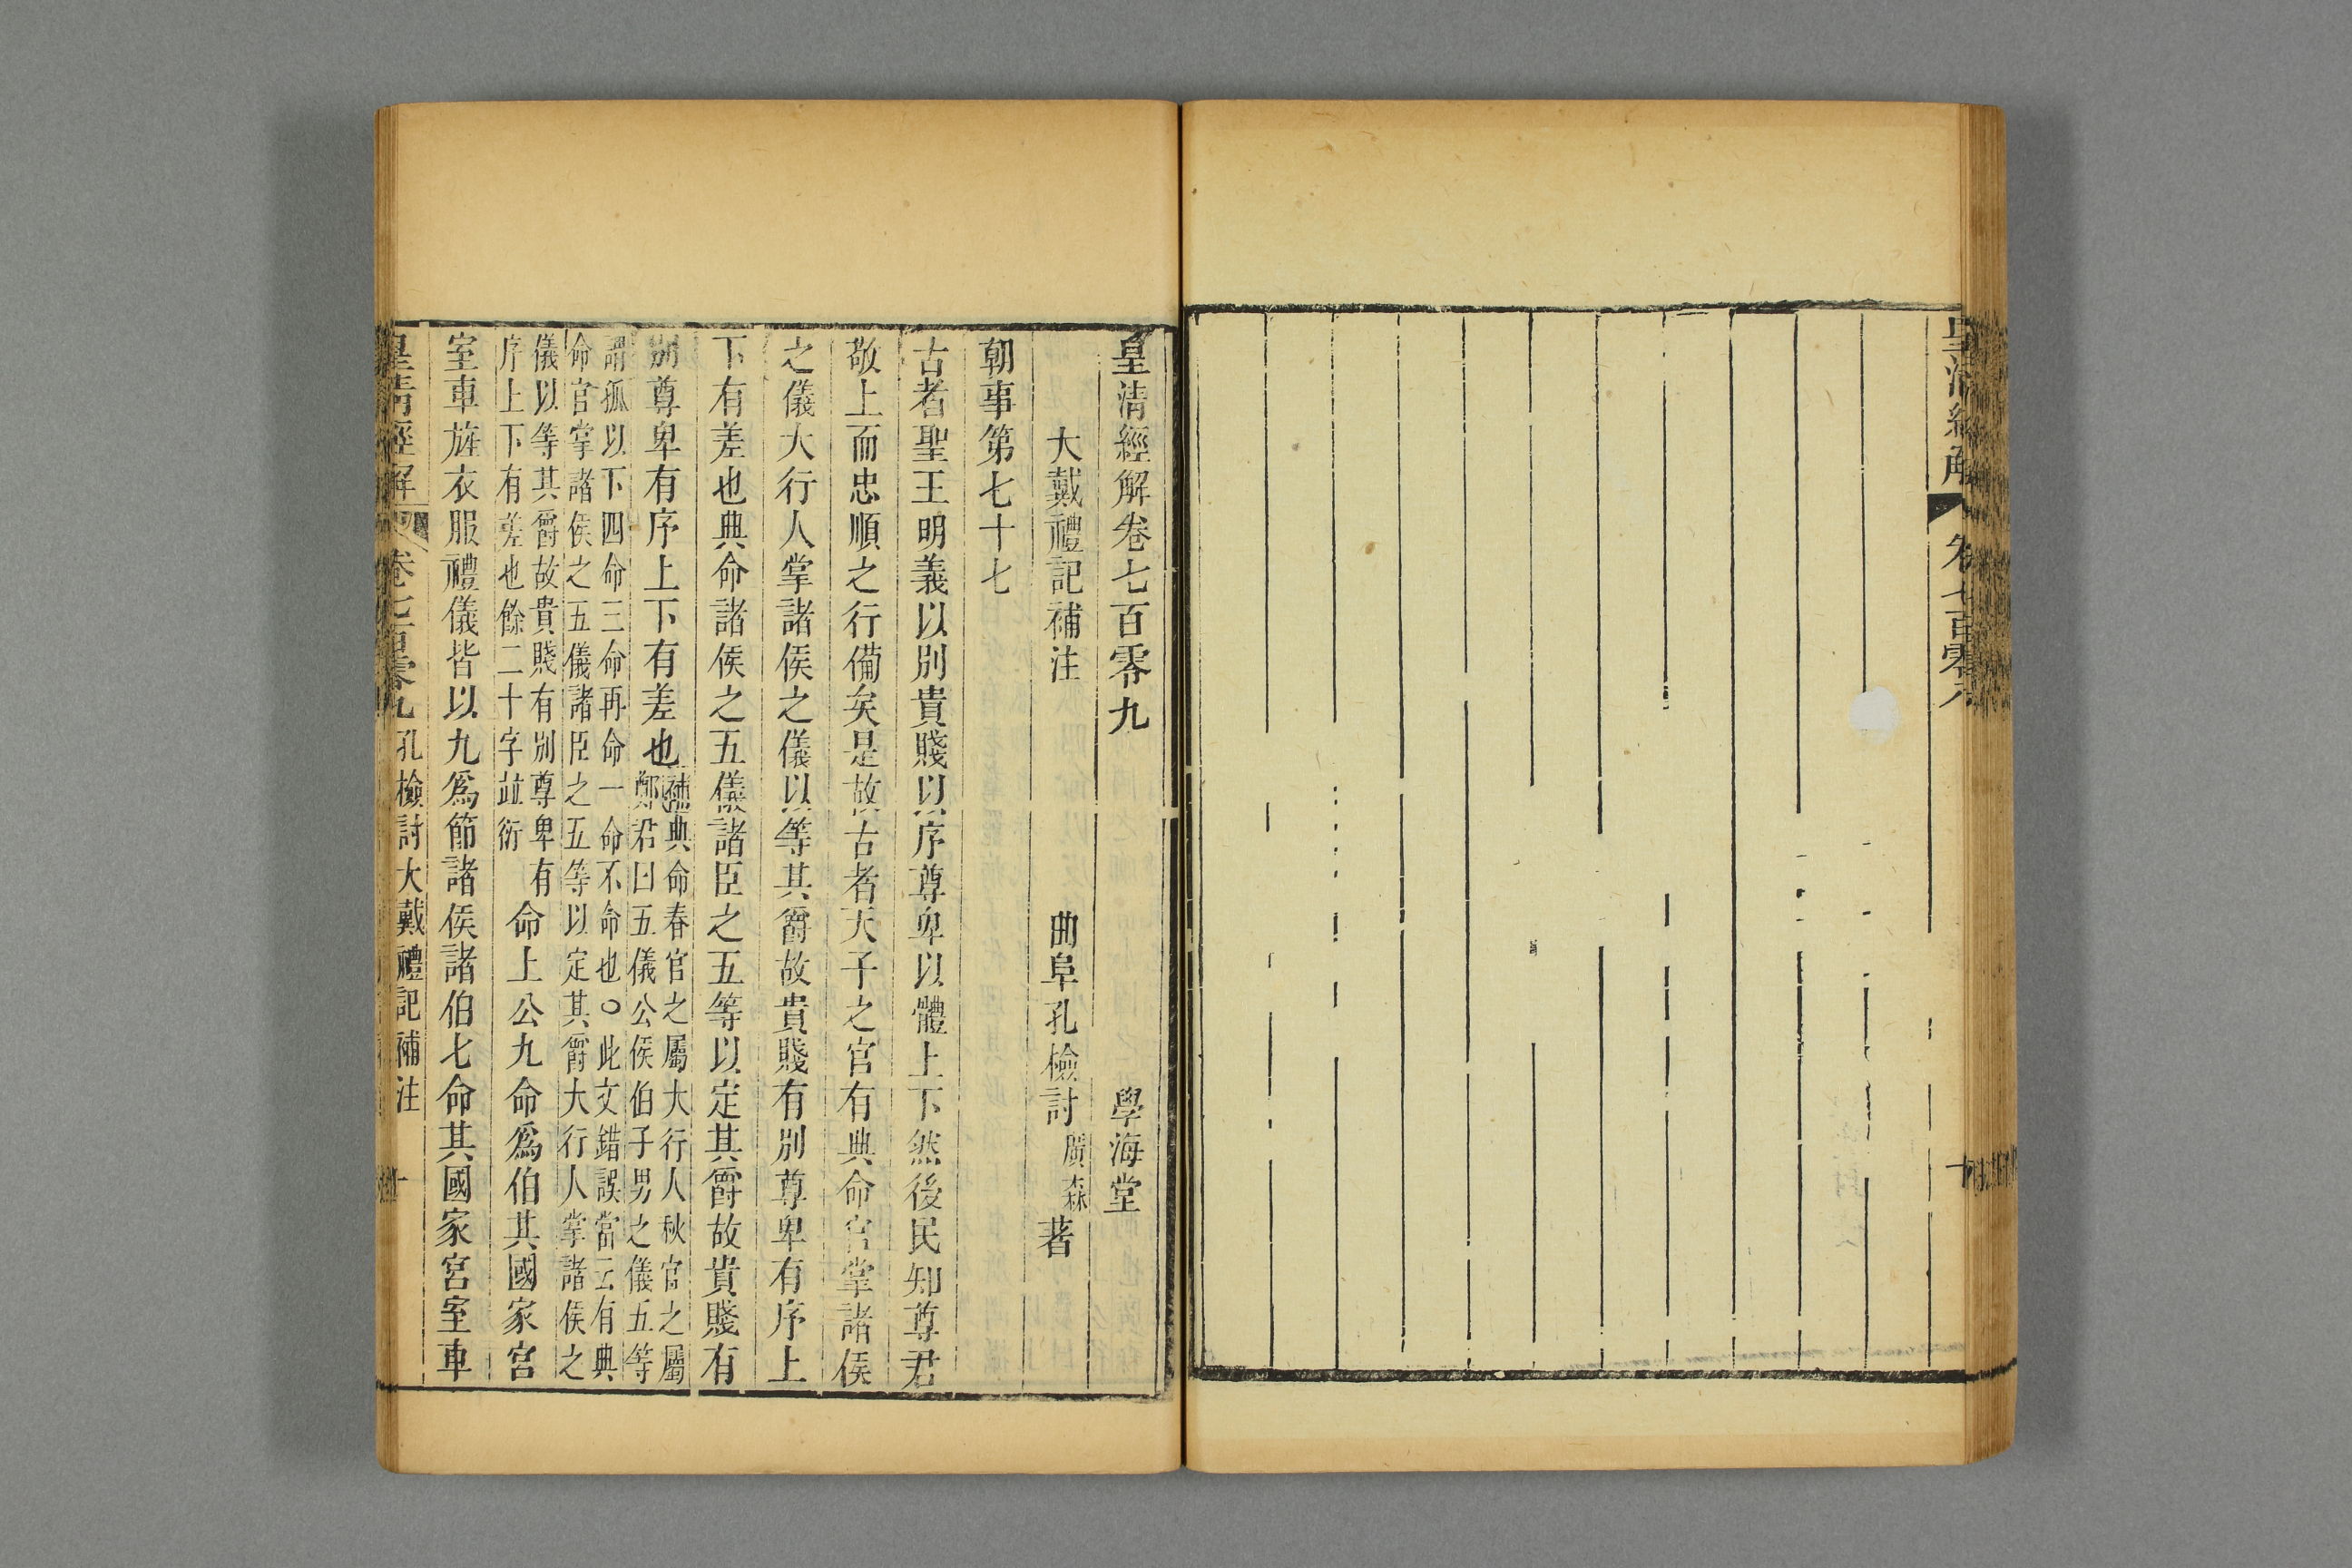 皇清經解
卷七百零八
十
皇清經解卷七百零九
學海堂
大戴禮記補注
曲阜孔檢討廣森著
朝事第七十七
古者聖王明義以別貴賤以序尊卑以體上下然後民知尊君
敬上而忠順之行備矣是故古者天子之官有典命官掌諸侯
之儀大行人掌諸侯之儀以等其爵故貴賤有別尊卑有序上
下有差也典命諸侯之五儀諸臣之五等以定其爵故貴賤有
別尊卑有序上下有差也
補典命春官之屬大行人秋官之屬
鄭君曰五儀公侯伯子男之儀五等
謂孤以下四命三命再命一命不命也○此文錯誤當云有典
命官掌諸侯之五儀諸臣之五等以定其爵大行人掌諸侯之
儀以等其爵故貴賤有別尊卑有
序上下有差也餘二十字並衍
命上公九命爲伯其國家宮
室車旌衣服禮儀皆以九爲節諸侯諸伯七命其國家宮室車
皇清經解
卷七百零九
孔檢討大戴禮記補注